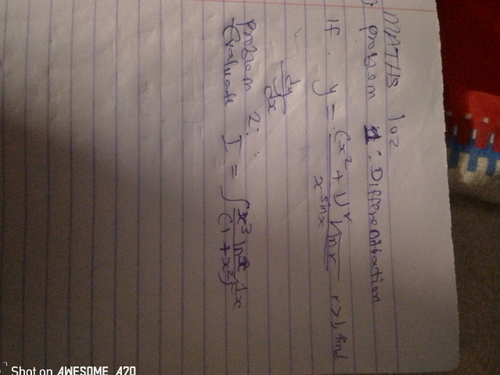 MATHS 102
Problem 1: Differentiation
If y = (x² + 1)ˣ √ln x / x^sin x, x > 1, find
dy/dx
Problem 2:
Evaluate I = ∫ x³ ln x / (1 + x²) dx
Shot on AWESOME A70